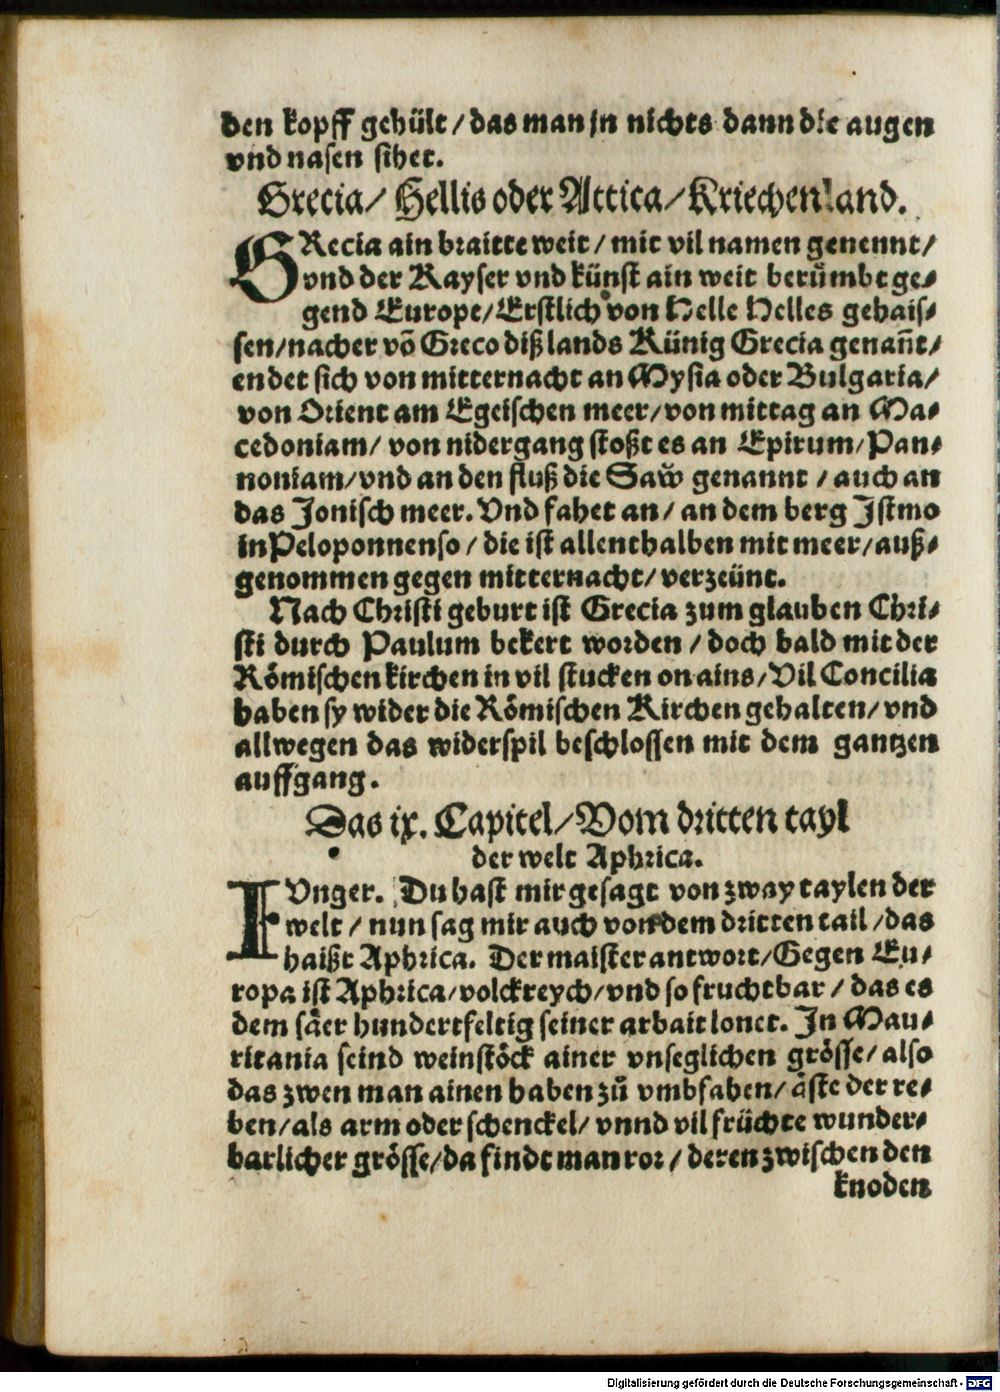 den kopff gehült / das man jn nichts dann die augen
vnd nasen sihet.
Grecia / Hellis oder Attica / Kriechenland.
GRecia ain braitte weit / mit vil namen genennt /
vnd der Kayser vnd künst ain weit berümbt ge⸗
gend Europe / Erstlich von Helle Helles gehais⸗
sen / nacher võ Greco diß lands Künig Grecia genañt /
endet sich von mitternacht an Mysia oder Bulgaria /
von Orient am Egeischen meer / von mittag an Ma⸗
cedoniam / von nidergang stoßt es an Epirum / Pan⸗
noniam / vnd an den fluß die Saw̆ genannt / auch an
das Jonisch meer. Vnd fahet an / an dem berg Jstmo
in Peloponnenso / die ist allenthalben mit meer / auß⸗
genommen gegen mitternacht / verzeünt.
Nach Christi geburt ist Grecia zum glauben Chri⸗
sti durch Paulum bekert worden / doch bald mit der
Römischen kirchen in vil stucken on ains / Vil Concilia
haben sy wider die Römischen Kirchen gehalten / vnd
allwegen das widerspil beschlossen mit dem gantzen
auffgang.
Das ix. Capitel / Vom dritten tayl
der welt Aphrica.
IVnger. Du hast mir gesagt von zway taylen der
welt / nun sag mir auch von dem dritten tail / das
haißt Aphrica. Der maister antwort / Gegen Eu⸗
ropa ist Aphrica / volckreych / vnd so fruchtbar / das es
dem säer hundertfeltig seiner arbait lonet. Jn Mau⸗
ritania seind weinstöck ainer vnseglichen grösse / also
das zwen man ainen haben zů vmbfahen / äste der re⸗
ben / als arm oder schenckel / vnnd vil früchte wunder⸗
barlicher grösse / da findt man ror / deren zwischen den
knoden
Digitalisierung gefördert durch die Deutsche Forschungsgemeinschaft - DFG